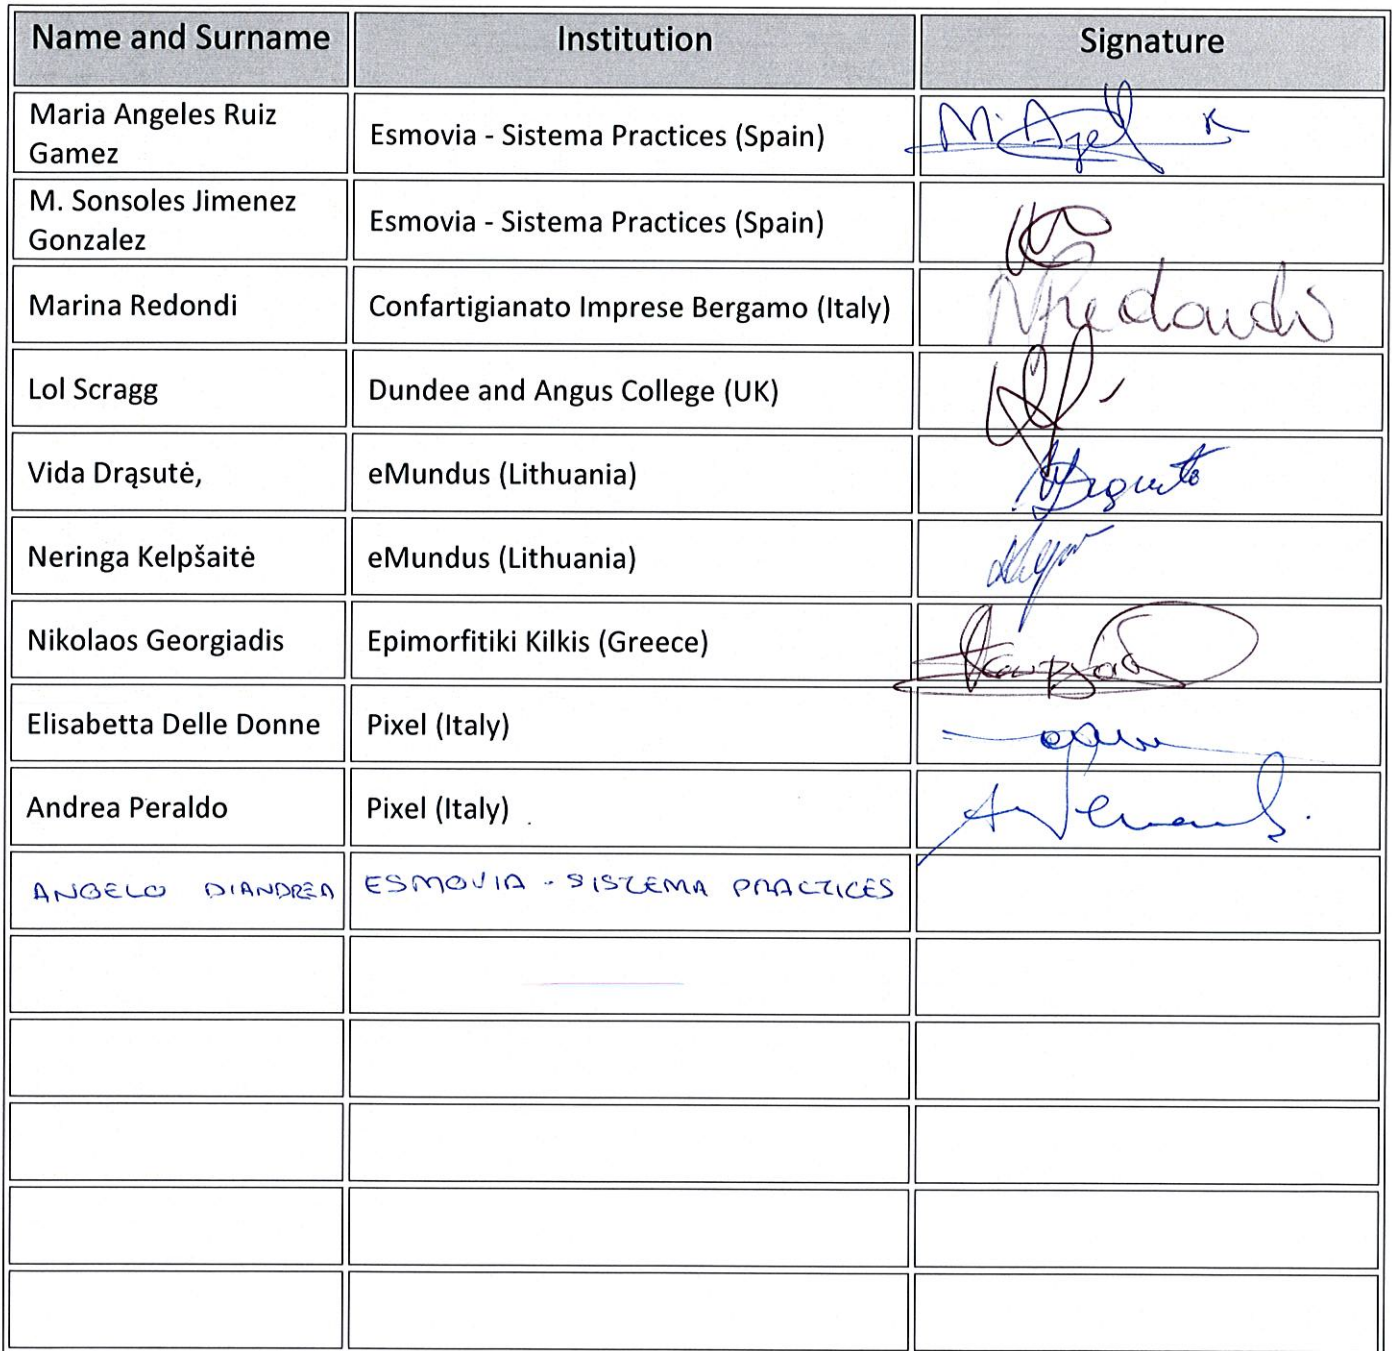 Name and Surname Institution Signature
Maria Angeles Ruiz
Gamez
Esmovia - Sistema Practices (Spain)
M. Sonsoles Jimenez
Gonzalez
Esmovia - Sistema Practices (Spain)
Marina Redondi Confartigianato Imprese Bergamo (Italy) MRedondi
Lol Scragg Dundee and Angus College (UK)
Vida Drąsutė, eMundus (Lithuania)
Neringa Kelpšaitė eMundus (Lithuania)
Nikolaos Georgiadis Epimorfitiki Kilkis (Greece)
Elisabetta Delle Donne Pixel (Italy)
Andrea Peraldo Pixel (Italy)
ANGELO DIANDREA ESMOVIA - SISTEMA PRACTICES